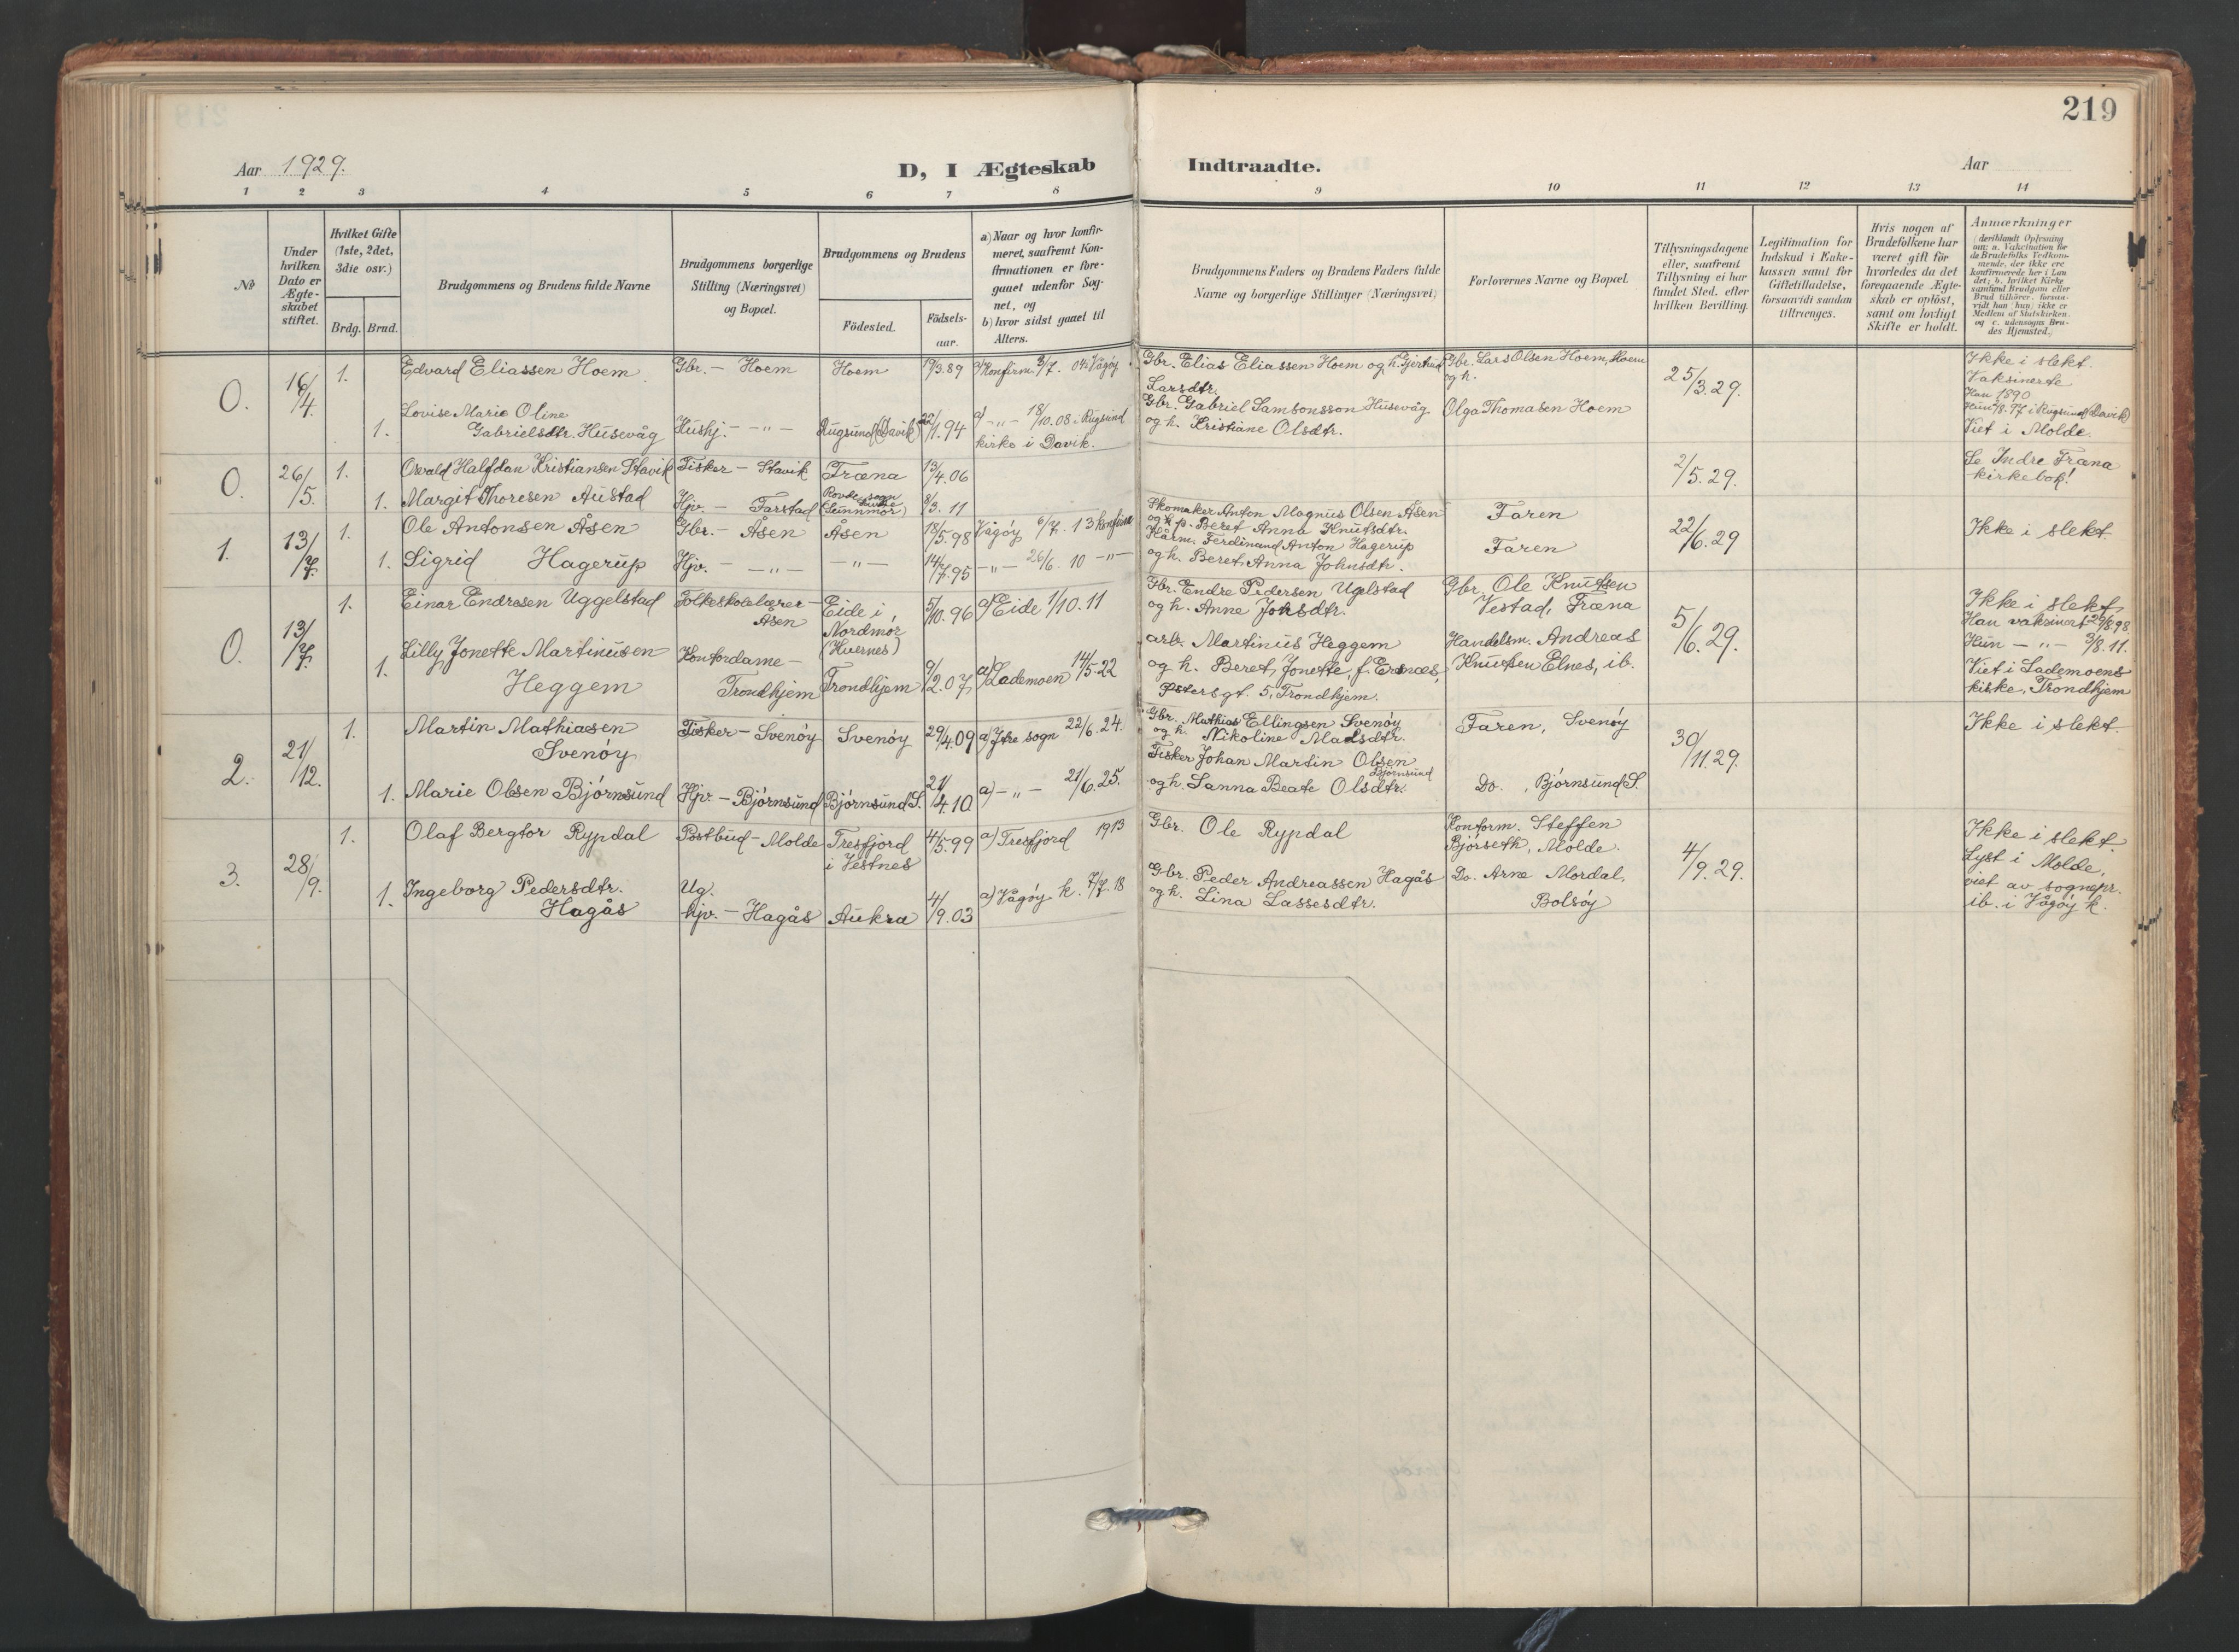 219
Aar 1929.
D, I Ægteskab Indtraadte.
Aar
1 2 3 4 5 6 7 8 9 10 11 12 13 14
No
Under hvilken Dato er Ægte-skabet stiftet.
Hvilket Gifte (1ste, 2det, 3die osv.)
Brdg. Brud.
Brudgommens og Brudens fulde Navne
Brudgommens borgerlige Stilling (Næringsvei) og Bopæl.
Brudgommens og Brudens
Födested.
Födsels-aar.
a) Naar og hvor konfir-meret, saafremt Kon-firmationen er fore-gaaet udenfor Sog-net, og
b) hvor sidst gaaet til Alters.
Brudgommens Faders og Brudens Faders fulde Navne og borgerlige Stillinger (Næringsvei)
Forlovernes Navne og Bopæl.
Tillysningsdagene eller, saafremt Tillysning ei har fundet Sted, efter hvilken Bevilling.
Legitimation for Indskud i Enke-kassen samt for Giftetilladelse, forsaavidt saadan tiltrænges.
Hvis nogen af Brudefolkene har været gift för hvorledes da det foregaaende Ægte-skab er oplöst, samt om lovligt Skifte er holdt.
Anmærkninger (deriblandt Oplysning om: a. Vakcination for de Brudefolks Vedkom-mende, der ikke ere konfirmerede her i Lan det; b. hvilket Kirke samfund Brudgom eller Brud tilhörer, forsaa-vidt han (hun) ikke er Medlem af Statskirken, og c. udensogns Bru-des Hjemsted.)
0. 16/4. 1. Edvard Eliassen Hoem Gbr. - Hoem Hoem 19/3.89 a) Konfirm. 3/7. 04 i Vågöy
Gbr. Elias Eliassen Hoem og h. Gjertrud Larsdtr.
Gbr. Lars Olsen Hoem, Hoem og h.
25/3.29.
Ikke i slekt.
Vaksinerte
Han 1890
1. Lovise Marie Oline
Gabrielsdtr. Husevåg Hushj. - -"- Rugsund (Davik) 22/1.94 a) -"- 18/10.08 i Rugsund
kirke i Davik.
Gbr. Gabriel Samsonsson Husevåg
og h. Kristiane Olsdtr.
Olga Thomasen Hoem
Hun /8.97 i Rugsund (Davik)
Viet i Molde.
0. 26/5. 1. Osvald Halfdan Kristiansen Stavik Fisker - Stavik Fræna 13/4.06
2/5.29.
Se Indre Fræna
kirkebok!
1. Margit Thoresen Austad Hjv. - Farstad Rovde sogn (Sunnmör) 8/3. 11
1. 13/7. 1. Ole Antonsen Åsen Gbr. - Åsen Åsen 18/5.98 Vågöy 6/7. 13 konfirm
Skomaker Anton Magnus Olsen Åsen
og h. Beret Anna Knutsdtr.
Faren
22/6.29
Ikke i slekt.
1. Sigrid Hagerup Hjv. - -"- -"- 14/7.95 -"- 26/6. 10 -"-
Ferdinand Anton Hagerup
og h. Beret Anna Johnsdtr.
Faren
0. 13/7. 1. Einar Endresen Uggelstad Folkeskolelærer -
Åsen
Eide i
Nordmör
(Kvernes)
5/10. 96 a) Eide 1/10. 11
Gbr. Endre Pedersen Ugelstad
og h. Anne Johsdtr.
Gbr. Ole Knutsen
Vestad, Fræna
5/6.29.
Ikke i slekt,
Han vaksinert 29/8.98.
Hun -"- 3/8.11.
1. Lilly Jonette Martinusen
Heggem
Kontordame -
Trondhjem Trondhjem 9/2.07 a) Lademoen 14/5-22
arb. Martinus Heggem
og h. Beret, Jonette, f.
gt. 5, Trondhjem.
Handelsm. Andreas
Knutsen Elnes, ib.
Viet i Lademoens
kirke, Trondhjem
2. 21/12. 1. Martin Mathiasen
Svenöy
Fisker - Svenöy Svenöy 29/4.09 a) Ytre sogn 22/6. 24.
Gbr. Mathias Ellingsen Svenöy
og h. Nikoline Madsdtr.
Faren, Svenöy
30/11.29.
Ikke i slekt.
1. Marie Olsen Björnsund Hjv. - Björnsund Björnsund S. 21/4.10 a) -"- 21/6.25.
Fisker Johan Martin Olsen
Björnsund
og h. Sanna Beate Olsdtr.
Do. , Björnsund S.
3. 28/9. 1. Olaf Bergtor Rypdal Postbud - Molde Tresfjord
i Vestnes
4/5.99 a) Tresfjord 1913
Gbr. Ole Rypdal
Kontorm. Steffen
Björseth, Molde.
4/9.29.
Ikke i slekt.
Lyst i Molde,
viet av sognepr.
ib. i Vågöy k.
1. Ingeborg Pedersdtr.
Hagås
Ug.
hjv. - Hagås Aukra 4/9.03 a) Vågöy k. 7/7. 18
Gbr. Peder Andreassen Hagås
og h. Lina Lassesdtr.
Do. Arne Mordal,
Bolsöy